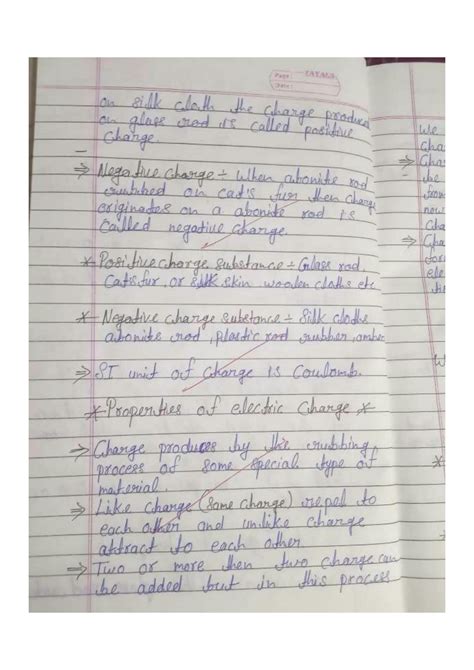 Page:
Date:
on silk cloth the charge produced
on glass rod is called positive
charge.
⇒ Negative charge ÷ When abonite rod
rubbed on cat's fur then charge
originates on a abonite rod is
called negative charge.
* Positive charge substance ÷ Glass rod,
Catsfur, or silk skin, wooden cloths etc
* Negative charge substance ÷ Silk cloths
abonite rod, plastic rod rubber, amber
⇒ SI unit of charge is Coulomb.
* Properties of electric charge *
⇒ Charge produces by the rubbing
process of some special type of
material
⇒ Like charge (same charge) repel to
each other and unlike charge
attract to each other
⇒ Two or more then two charge can
be added but in this process
We
⇒
the
from
now
⇒